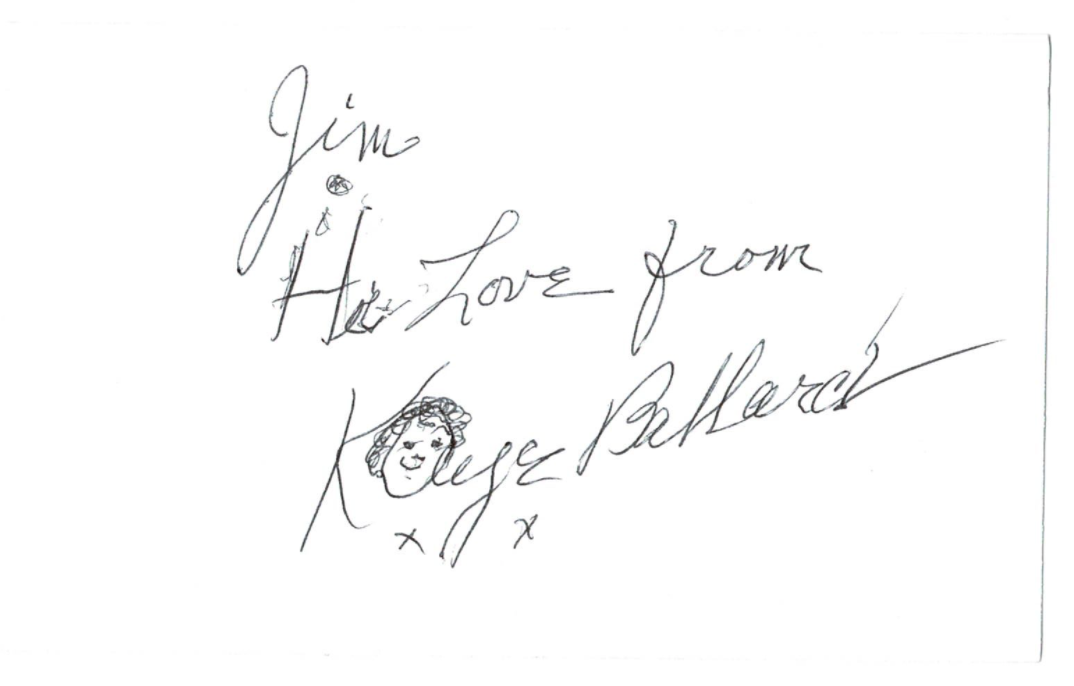 Jim
Love from
Kaye Ballard
x x